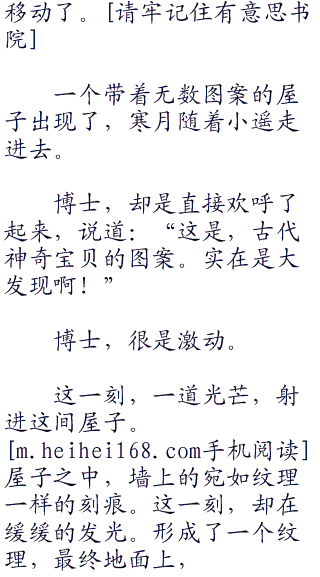 移动了。[请牢记住有意思书
院]
一个带着无数图案的屋
子出现了，寒月随着小遥走
进去。
博士，却是直接欢呼了
起来，说道：“这是，古代
神奇宝贝的图案。实在是大
发现啊！”
博士，很是激动。
这一刻，一道光芒，射
进这间屋子。
[m.heihei168.com手机阅读]
屋子之中，墙上的宛如纹理
一样的刻痕。这一刻，却在
缓缓的发光。形成了一个纹
理，最终地面上，